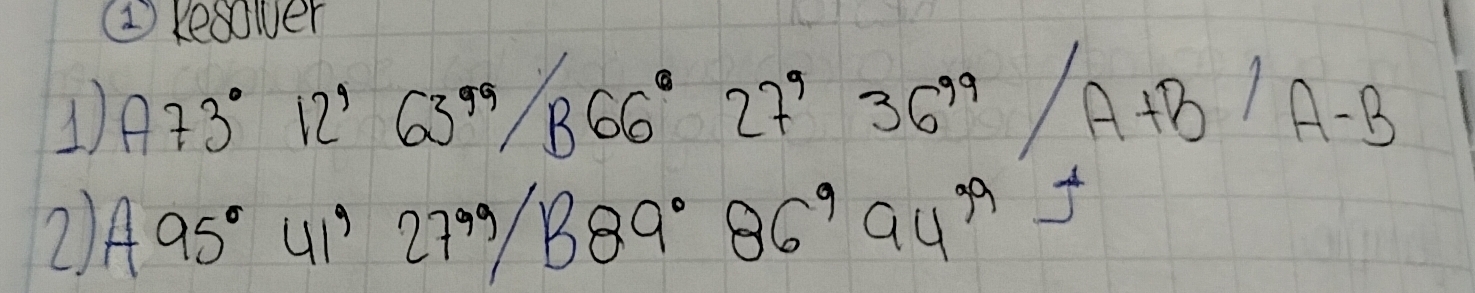 ① Resolver
1) A 73° 12' 63'' / B 66° 27' 36'' / A+B / A-B
2) A 95° 41' 27'' / B 89° 86' 94''